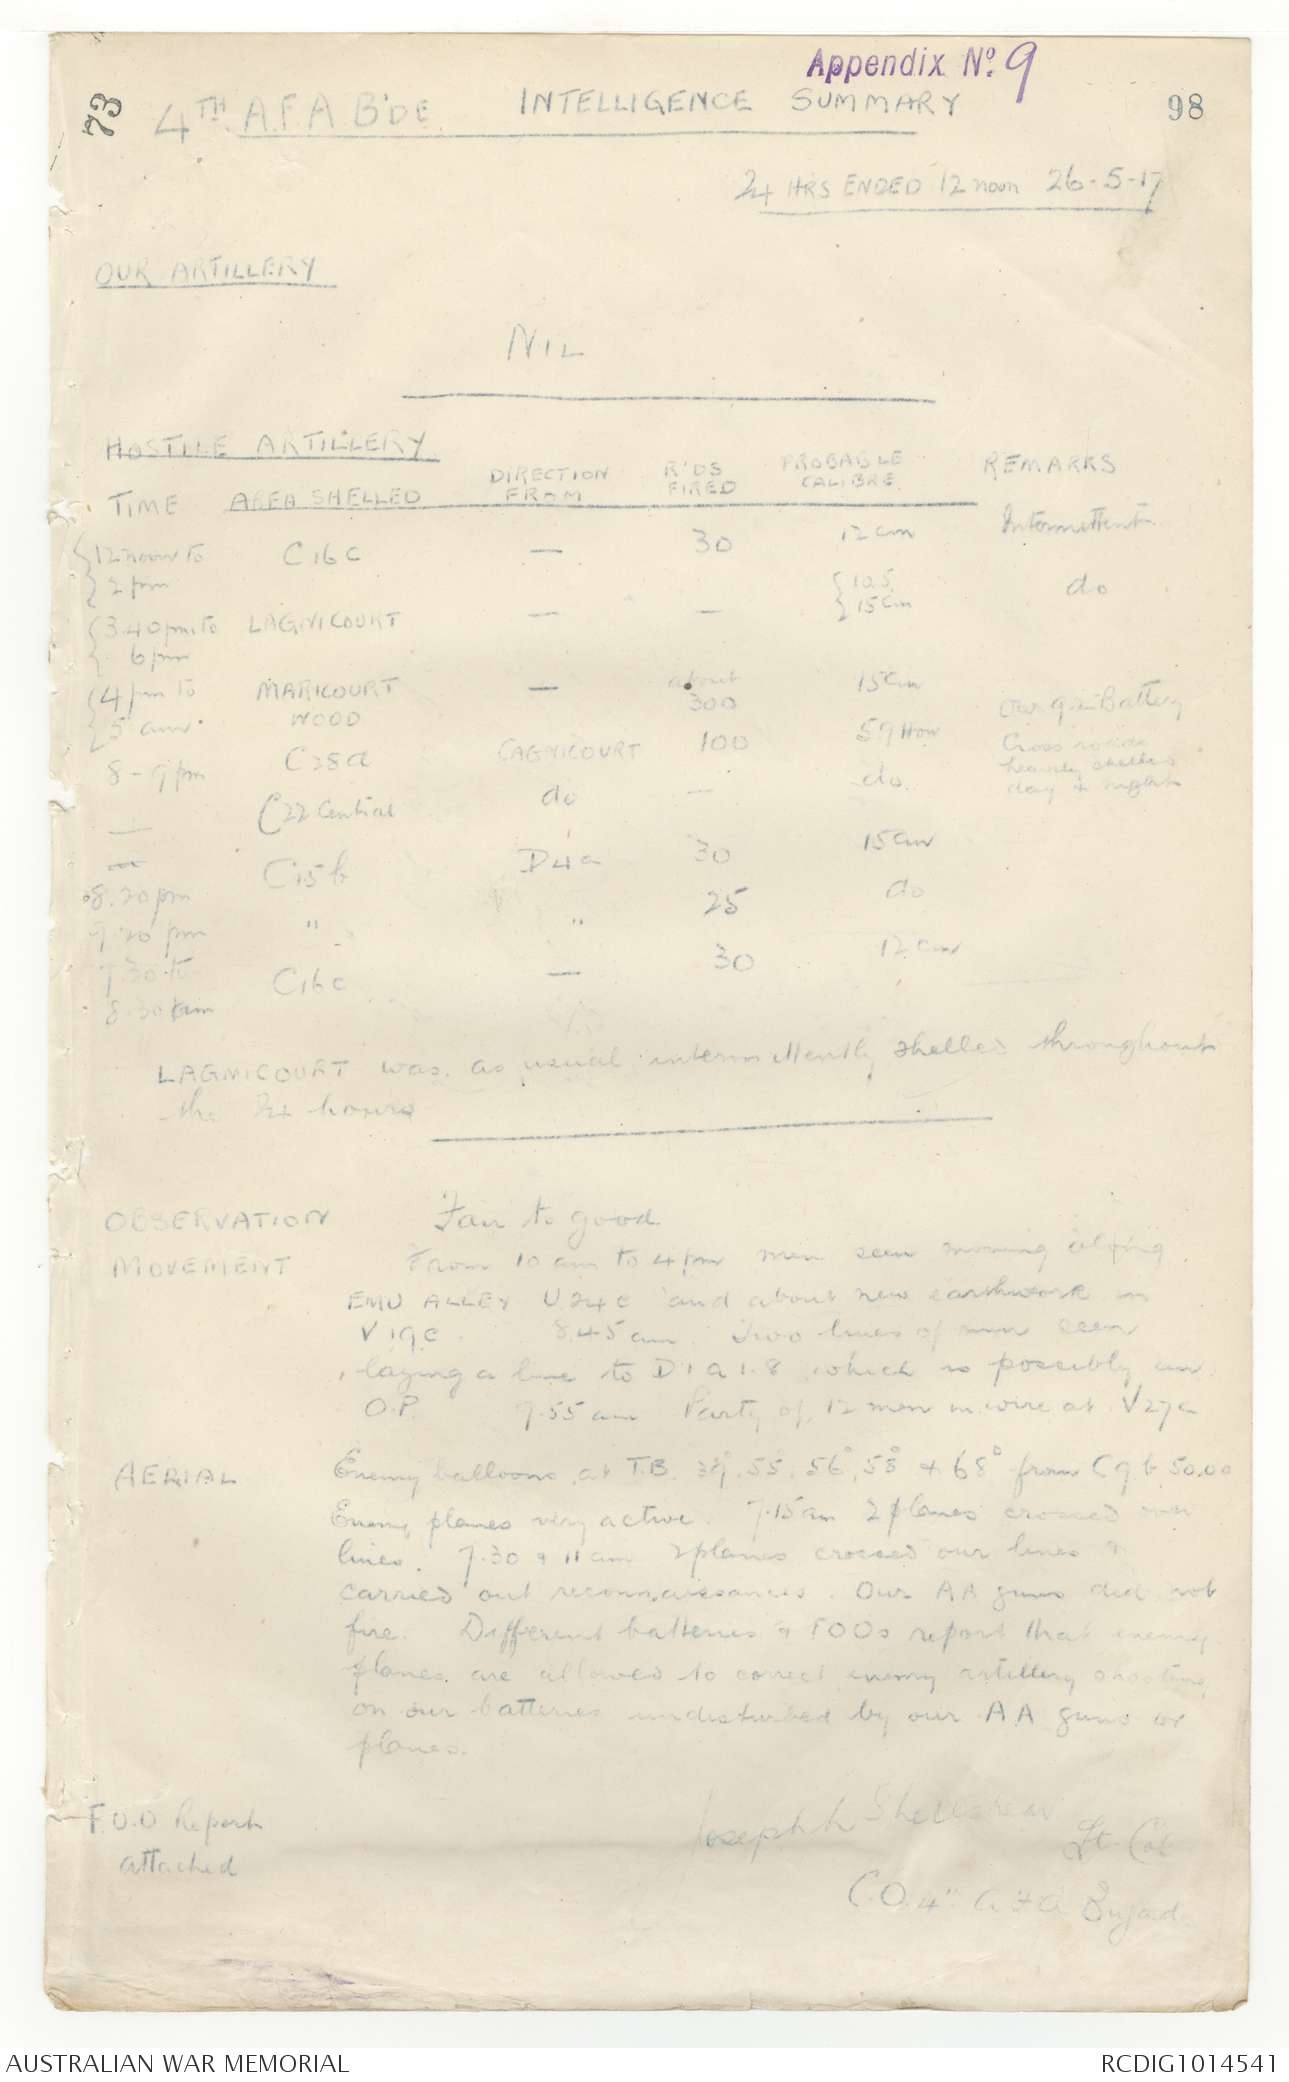 Appendix No. 9
73
98
4TH A.F.A B'DE INTELLIGENCE SUMMARY
24 HRS ENDED 12 noon 26-5-17
OUR ARTILLERY
NIL
HOSTILE ARTILLERY
TIME AREA SHELLED DIRECTION FROM R'DS FIRED PROBABLE CALIBRE REMARKS
12 noon to 2 pm C16c — 30 12 cm Intermittent
3.40 pm to 6 pm LAGNICOURT — — 10.5 15 cm do
4 pm to 5 am MARICOURT WOOD — about 300 15 cm Our Battery
8 - 9 pm C28a CAGNICOURT 100 5.9 How Cross roads heavily shelled day & night
— C22 Central do — do
— C15b D4a 30 15 cm
8.20 pm
9.20 pm " " 25 do
7.30 to 8.30 am C16c — 30 12 cm
LAGNICOURT was as usual intermittently shelled throughout
the 24 hours
OBSERVATION Fair to good.
MOVEMENT From 10 am to 4 pm men seen moving along
EMU ALLEY U24c and about new earthwork in
V19c. 8.45 am. Two lines of men seen
laying a line to D1a 1.8 which is possibly an
O.P. 9.55 am Party of 12 men in wire at V27a
AERIAL Enemy balloons at T.B. 39°, 55, 56°, 58° & 68° from C9b 50.00
Enemy planes very active. 7.15 am 2 planes crossed our
lines. 7.30 & 11 am 2 planes crossed our lines &
carried out reconnaissances. Our AA guns did not
fire. Different batteries & FOOs report that enemy
planes are allowed to correct enemy artillery shooting
on our batteries undisturbed by our AA guns or
planes.
F.O.O Report
attached
Joseph L Shellshear Lt-Col
C.O. 4th A F A Brigade
AUSTRALIAN WAR MEMORIAL RCDIG1014541